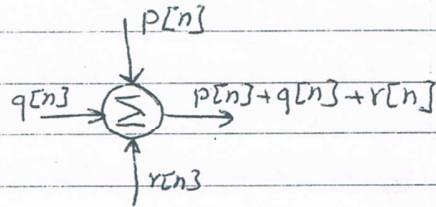 p[n]
q[n] Σ p[n]+q[n]+r[n]
r[n]